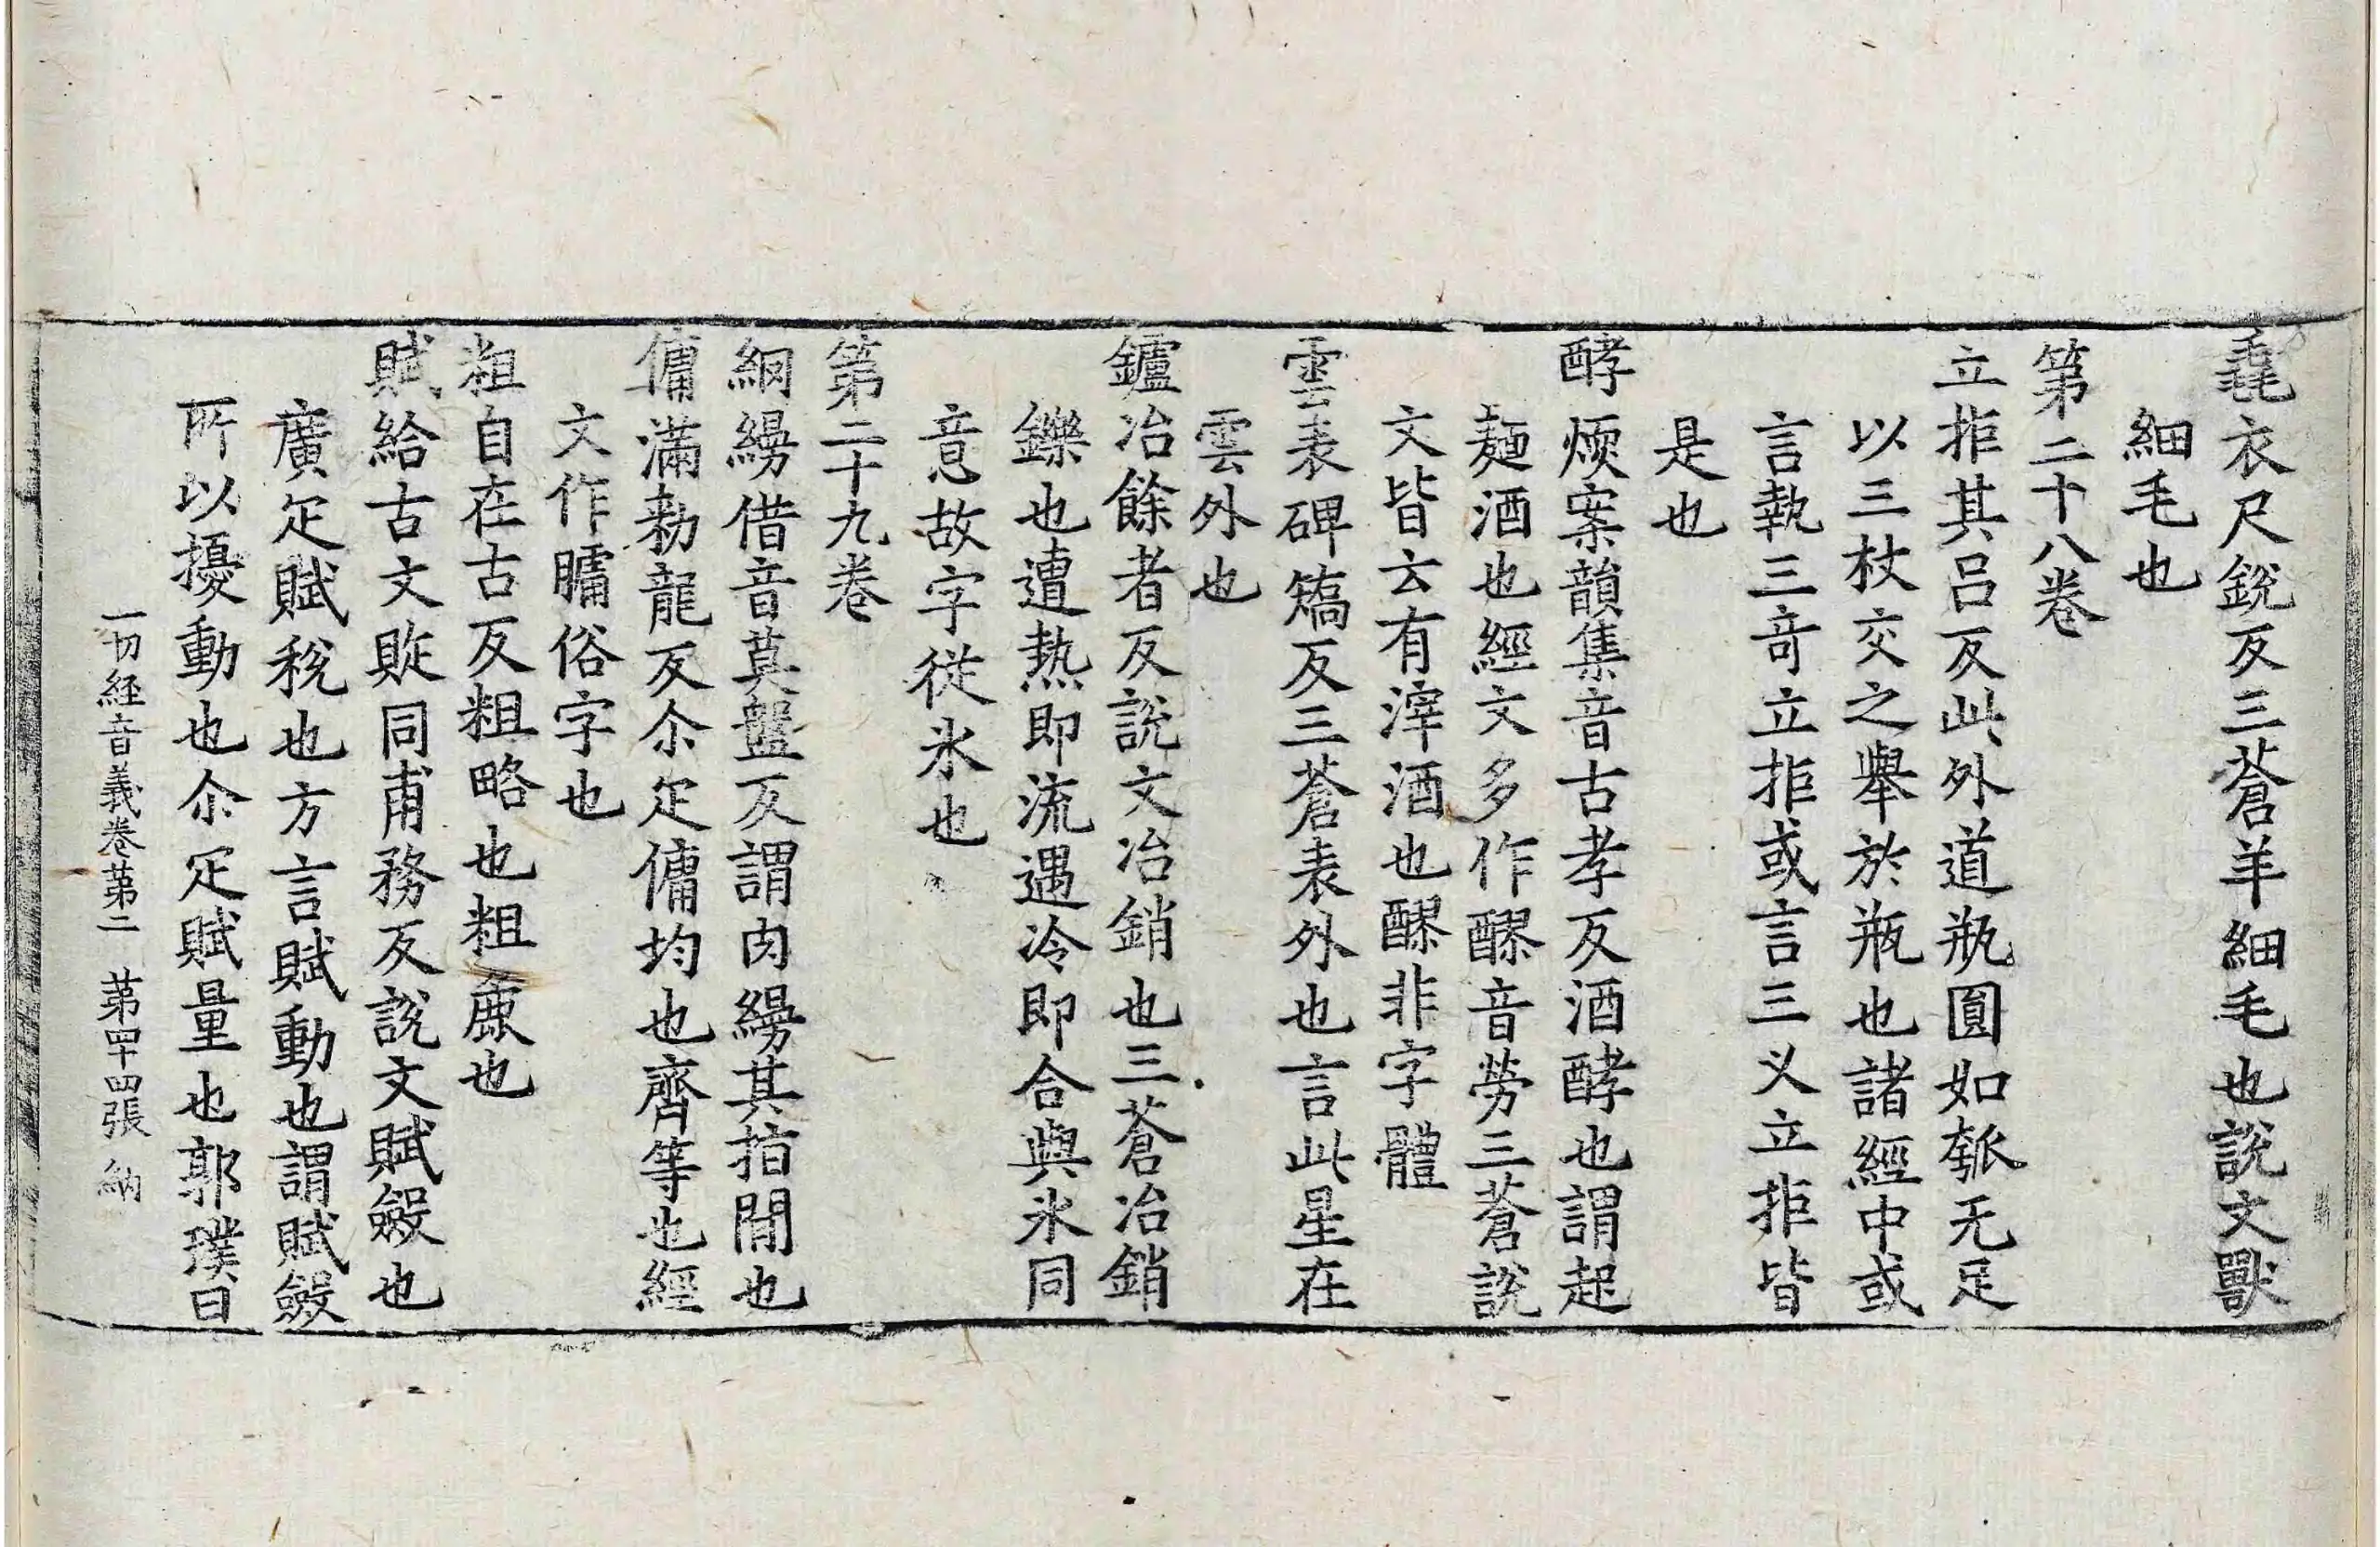 毳衣尺銳反三蒼羊細毛也說文獸
細毛也
第二十八卷
立拒其呂反此外道瓶圓如瓠无足
以三杖交之舉於瓶也諸經中或
言執三奇立拒或言三叉立拒皆
是也
酵煗案韻集音古孝反酒酵也謂起
麺酒也經文多作醪音勞三蒼說
文皆云有滓酒也醪非字體
雲表碑矯反三蒼表外也言此星在
雲外也
鑪冶餘者反說文冶銷也三蒼冶銷
鑠也遭热即流遇冷即合與氷同
意故字從氷也
第二十九卷
網縵借音莫盤反謂肉縵其指間也
傭滿勑龍反尒疋傭均也齊等也經
文作𦟛俗字也
粗自在古反粗略也粗麁也
賦給古文䝾同甫務反說文賦斂也
廣疋賦稅也方言賦動也謂賦斂
所以擾動也尒疋賦量也郭璞曰
一切經音義卷第二 第四十四張 納